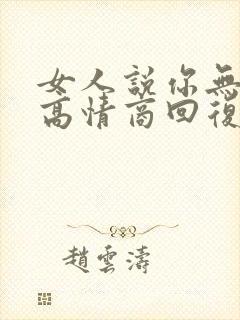 女人説你無
高情商回復
趙雲濤